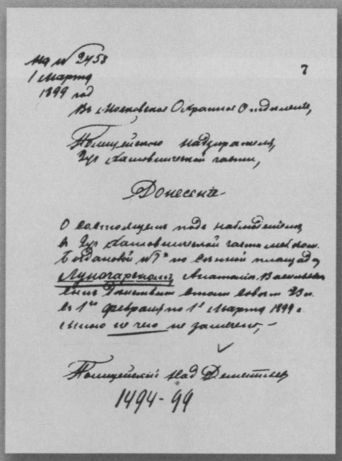 на № 2453
1 Марта
1899 год
7
Въ Московское Охранное Отделение,
Полицейского надзирателя,
2 уч. Хамовнической части,
Донесение
О состоящемъ подъ наблюдениемъ
въ 2 уч. Хамовнической части
Богдановой № по площади
Луначарскомъ Анатолии Васильеве
съ 1го февраля по 1е Марта 1899 г.
ни чего не замечено,-
Полицейский Над Дементьев
1494-99